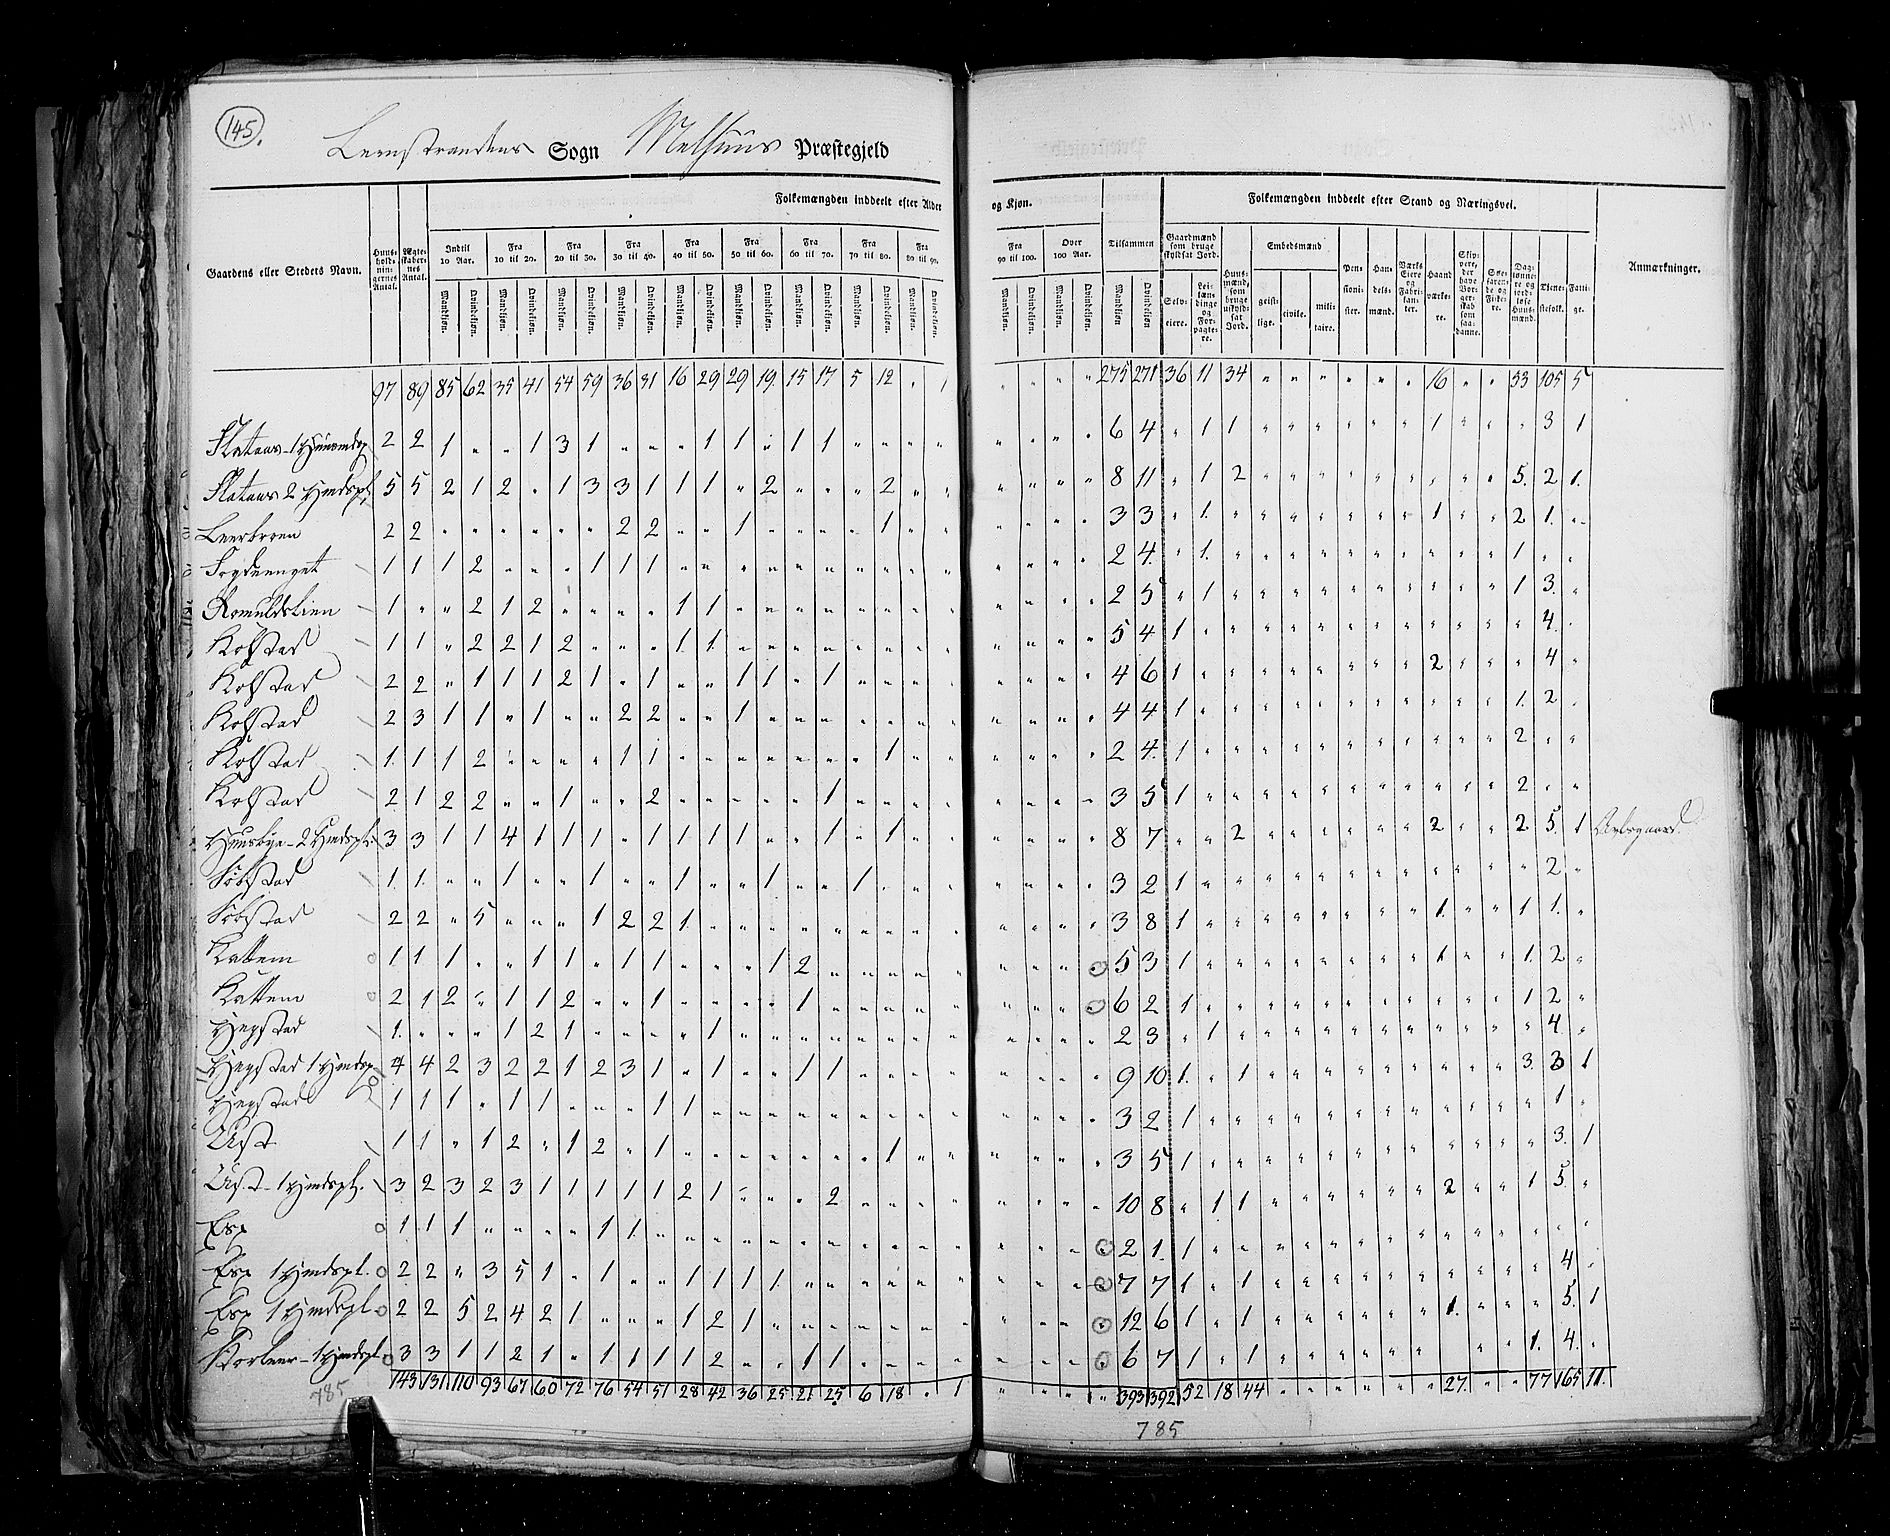 145.
Leenstrandens Sogn Melhuus Præstegjeld
Gaardens eller Stedets Navn. Huusholdningernes Antal. Ægteskabernes Antal. Folkemængden inddeelt efter Alder og Kjøn. Folkemængden inddeelt efter Stand og Næringsvei. Anmærkninger.
Indtil 10 Aar. Fra 10 til 20. Fra 20 til 30. Fra 30 til 40. Fra 40 til 50. Fra 50 til 60. Fra 60 til 70. Fra 70 til 80. Fra 80 til 90. Fra 90 til 100. Over 100 Aar. Tilsammen
Gaardmænd som bruge skyldsat Jord. Selveiere. Leilændinge og Forpagtere. Huusmænd, som bruge uskyldsat Jord. Embedsmænd geistlige. civile. militaire. Pensionister. Handelsmænd. Værks Eiere og Fabrikanter. Haandværkere. Skippere, der have Borgerskab som saadanne. Søefarende og Fiskere. Daglønnere og jordløse Huusmænd. Tjenestefolk. Fattige.
Mandkjøn. Qvindekjøn. Mandkjøn. Qvindekjøn. Mandkjøn. Qvindekjøn. Mandkjøn. Qvindekjøn. Mandkjøn. Qvindekjøn. Mandkjøn. Qvindekjøn. Mandkjøn. Qvindekjøn. Mandkjøn. Qvindekjøn. Mandkjøn. Qvindekjøn. Mandkjøn. Qvindekjøn. Mandkjøn. Qvindekjøn. Mandkjøn. Qvindekjøn.
97 89 85 62 35 41 54 59 36 31 16 29 29 19 15 17 5 12 " 1 " " " " 275 271 36 11 34 " " " " " " 16 " " 53 105 5
Flataas 1 2 2 1 " " 1 3 1 " " " 1 1 " 1 1 " " " " " " " " 6 4 " 1 1 " " " " " " 1 " " " 3 1
Flataas 2 Hmdspl. 5 5 2 1 2 " 1 3 3 1 1 1 " 2 " " " 2 " " " " " " 8 11 " 1 2 " " " " " " " " " 5 2 1
Leerbroen 2 2 " " " " " " 2 2 " " 1 " " " " 1 " " " " " " 3 3 " 1 " " " " " " " 1 " " 2 1 "
Fogdeenget 1 1 1 2 " " " 1 1 1 " " " " " " " " " " " " " " 2 4 " 1 " " " " " " " " " " 1 " "
Romuldslien 1 " " 2 1 2 " " " " 1 1 " " " " " " " " " " " " 2 5 " 1 " " " " " " " " " " 1 3 "
Kolstad 1 1 " 2 2 1 2 " " " 1 1 " " " " " " " " " " " " 5 4 1 " " " " " " " " " " " " 4 "
Kolstad 2 2 " 1 1 1 2 1 " 1 " " 1 1 " 1 " " " " " " " " 4 6 1 " " " " " " " " 2 " " " 4 "
Kolstad 2 3 1 1 " 1 " " 2 2 " " 1 " " " " " " " " " " " 4 4 1 " " " " " " " " " " " 1 2 "
Kolstad 1 1 1 2 " " " " 1 1 " " " " " " " 1 " " " " " " 2 4 1 " " " " " " " " " " " 2 " "
Kolstad 2 1 2 2 " " 1 " " 2 " " " " " 1 " " " " " " " " 3 5 1 " " " " " " " " " " " 2 " "
Huusbye 2 Hmdspl. 3 3 1 1 4 1 1 1 " 1 1 1 1 " " 1 " 1 " " " " " " 8 7 " " 2 " " " " " " 2 " " 2 5 1 Avlsgaard.
Sobstad 1 1 " " 1 " " 1 " " 1 " " 1 " " 1 " " " " " " " 3 2 1 " " " " " " " " " " " " 2 "
Sobstad 2 2 " 5 " " " 1 2 2 1 " " " " " " " " " " " " " 3 8 1 " " " " " " " " 1 " " 1 1 "
Kattem 1 1 1 " " 1 1 " 1 1 " " " 1 2 " " " " " " " " " 5 3 1 " " " " " " " " 1 " " 1 2 "
Kattem 2 1 2 " 1 1 2 " " 1 " " " " 1 " " " " " " " " " 6 2 1 " " " " " " " " " " " 1 2 "
Hegstad 1 " " " 1 2 1 " " " " 1 " " " " " " " " " " " " 2 3 " 1 " " " " " " " " " " " 4 "
Hegstad 1 Hmdspl. 4 4 2 3 2 2 1 2 3 1 " 1 " " 1 1 " " " " " " " " 9 10 1 " 1 " " " " " " " " " 3 3 1
Hegstad 1 1 1 " 1 1 " " " 1 1 " " " " " " " " " " " " " 3 2 1 " " " " " " " " " " " " 1 "
Ust 1 1 " 1 2 " 1 2 " 1 " " " " " " " 1 " " " " " " 3 5 1 " " " " " " " " " " " " 3 1
Ust 1 Hmdspl. 3 2 3 2 3 1 1 1 1 1 2 1 " " " 2 " " " " " " " " 10 8 " 1 1 " " " " " " 2 " " 1 5 "
Esp 1 1 1 " " " " 1 1 " " " " " " " " " " " " " " " 2 1 1 " " " " " " " " " " " " " "
Esp 1 Hmdspl. 2 2 " 3 5 1 " 1 " " 1 1 1 1 " " " " " " " " " " 7 7 1 " 1 " " " " " " " " " " 4 "
Esp 1 Hmdspl. 2 2 5 2 4 2 1 " " " 1 2 1 " " " " " " " " " " " 12 6 1 " 1 " " " " " " 1 " " " 5 1
1 Hmdspl. 3 3 1 1 2 1 " 1 1 1 1 2 " " 1 1 " " " " " " " " 6 7 1 " 1 " " " " " " " " " 1 4 "
143 131 110 93 67 60 72 76 54 51 28 42 36 25 21 25 6 18 " 1 " " " " 393 392 52 18 44 " " " " " " 27 " " 77 165 11
785
785